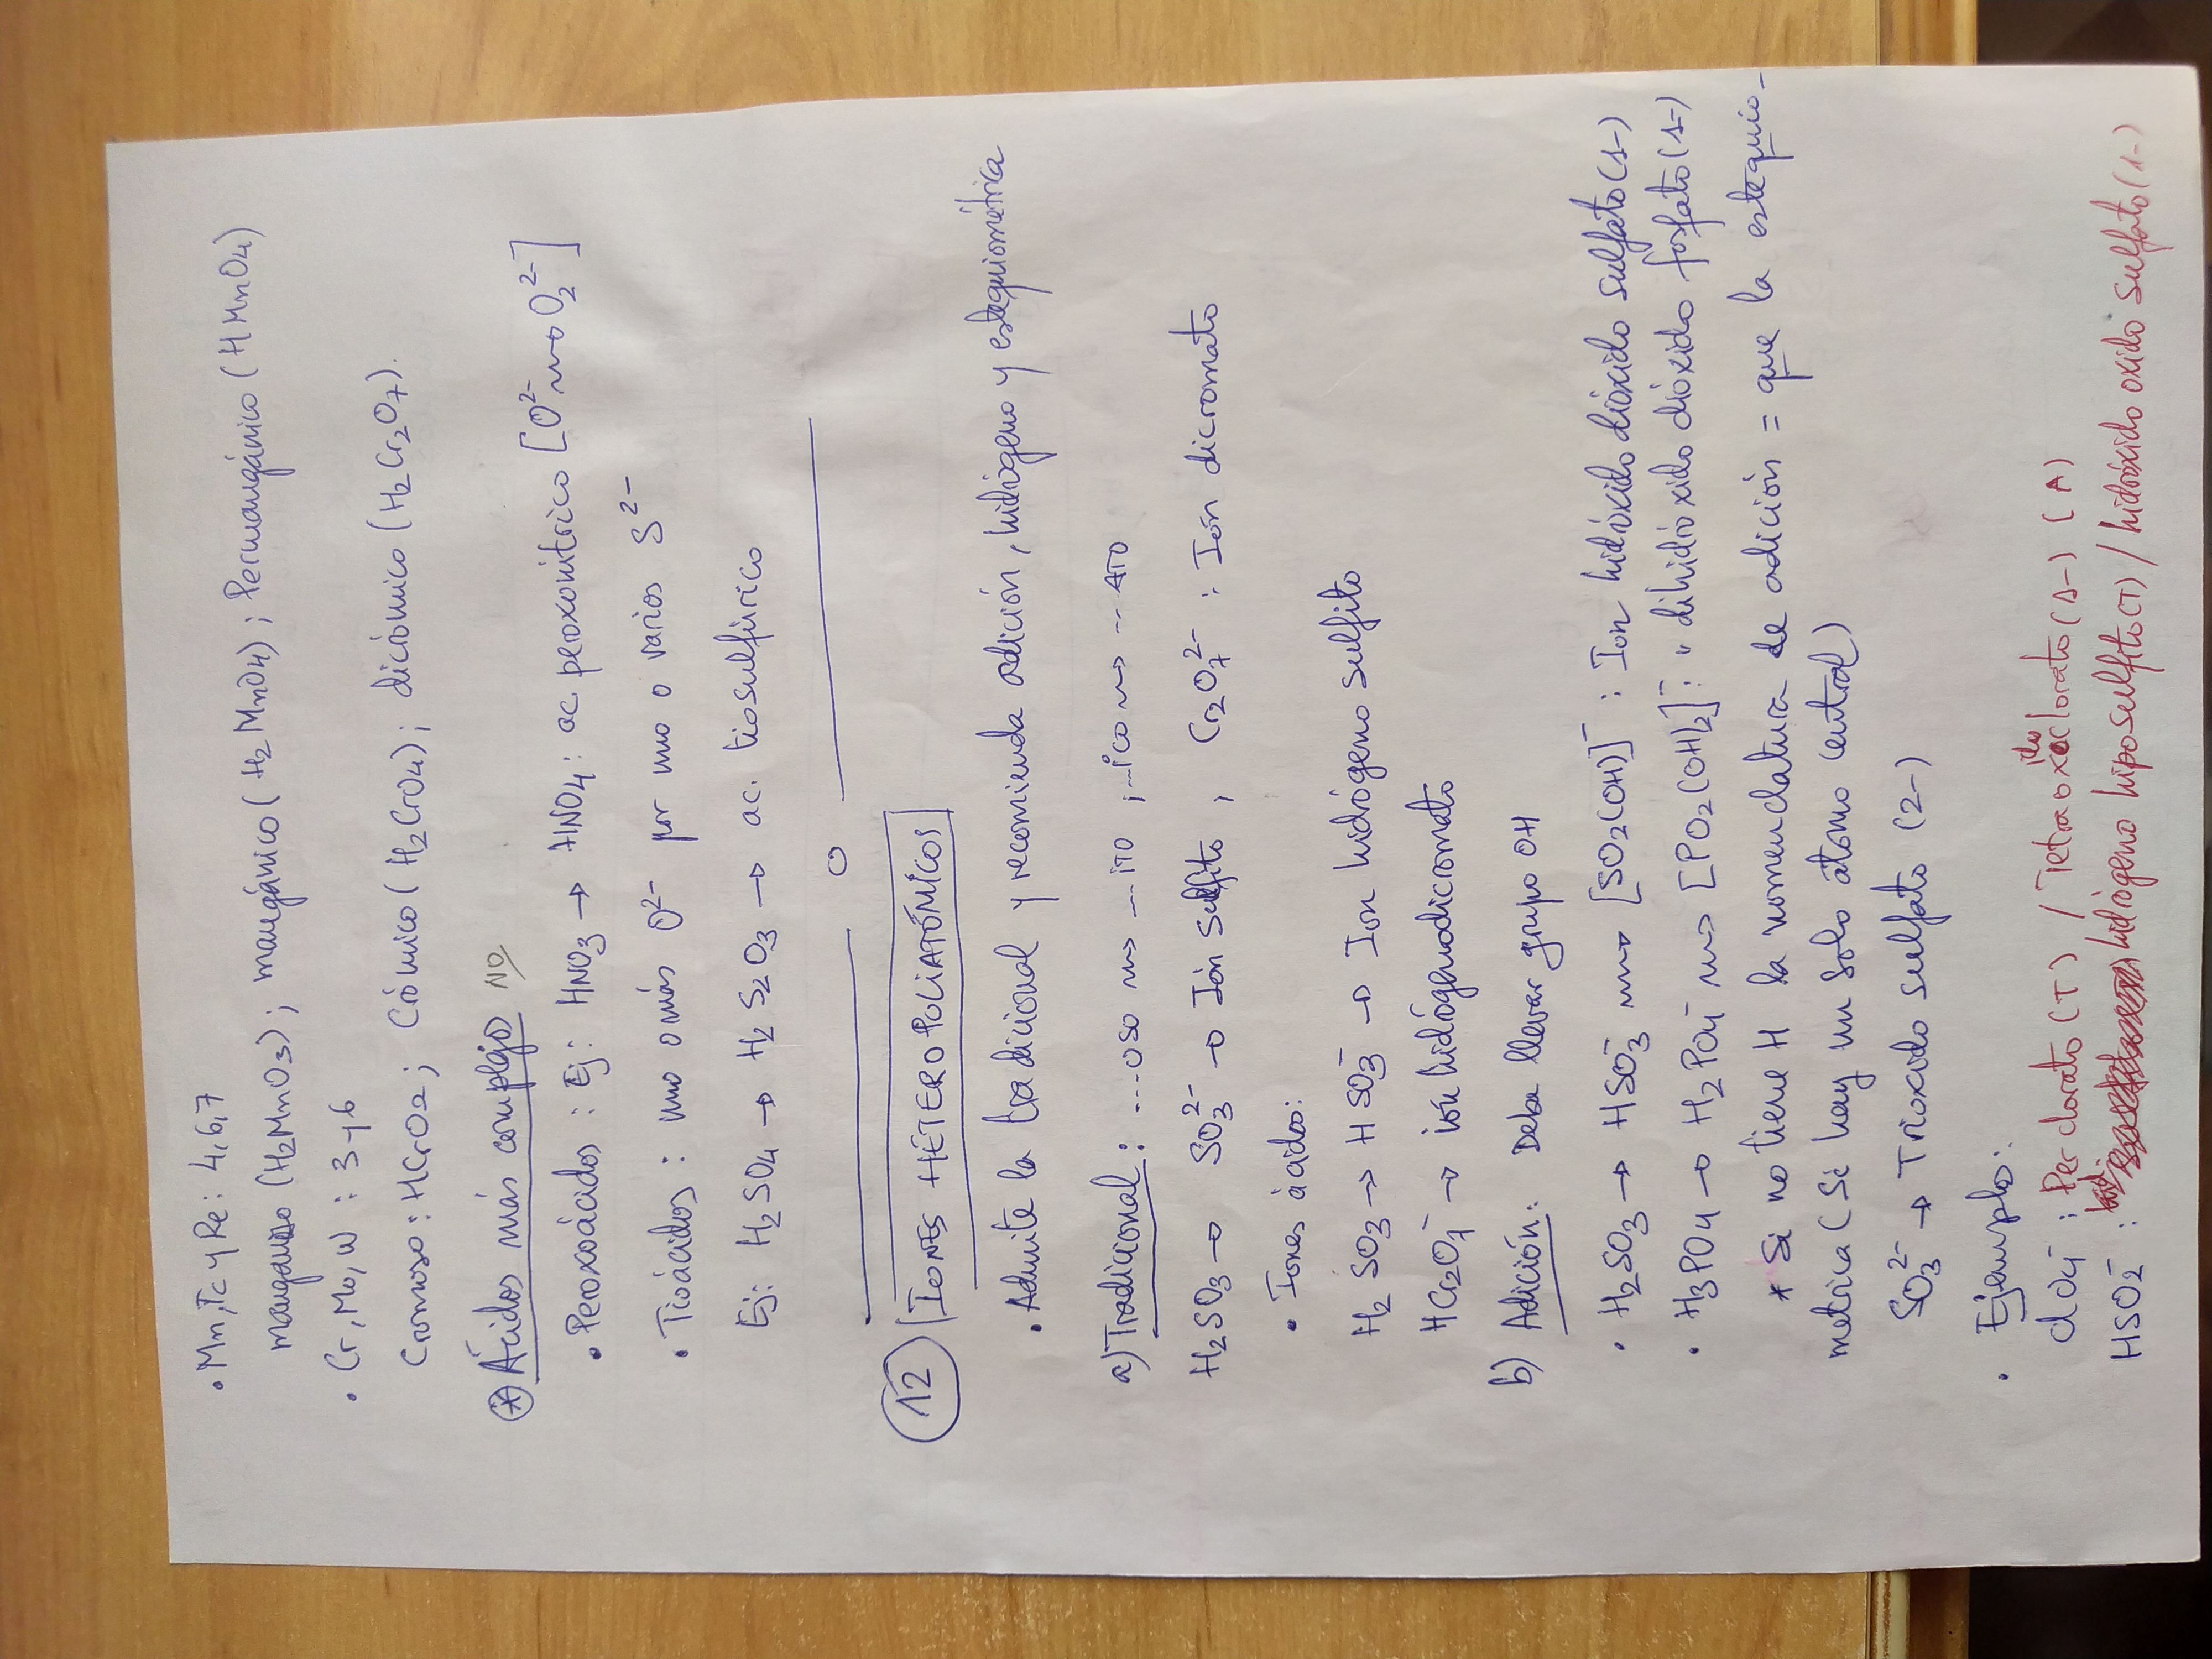 • Mn, Tc y Re: 4,6,7
manganoso (H2MnO3); mangánico (H2MnO4); Permangánico (HMnO4)
• Cr, Mo, W : 3 y 6
Cromoso: HCrO2; Crómico (H2CrO4); dicrómico (H2Cr2O7).
* Ácidos más complejos NO
• Peroxoácidos: Ej: HNO3 → HNO4: ac peroxonítrico [O2- ~> O2 2-]
• Tioácidos: uno o más O2- por uno o varios S2-
Ej: H2SO4 → H2S2O3 → ac. tiosulfúrico
12 IONES HÉTEROPOLIATÓMICOS
• Admite la tradicional y recomienda adición, hidrógeno y estequiométrica
a) Tradicional: ...oso ~> ...ITO ; ...ico ~> ...ATO
H2SO3 → SO3 2- → Ión sulfito , Cr2O7 2- : Ión dicromato
• Iones ácidos:
H2SO3 → HSO3- → Ion hidrógeno sulfito
HCr2O7- → ión hidrógenodicromato
b) Adición: Deba llevar grupo OH
• H2SO3 → HSO3- ~> [SO2(OH)]- : Ion hidróxido dióxido sulfato (1-)
• H3PO4 → H2PO4- ~> [PO2(OH)2]- : " dihidróxido dióxido fosfato (1-)
* Si no tiene H la nomenclatura de adición = que la estequio-
métrica (Si hay un solo átomo central)
SO3 2- → Trióxido sulfato (2-)
• Ejemplos:
ClO4- : Perclorato (T) / Tetraoxidoclorato (1-) (A)
HSO2- : hidrógeno hiposulfito (T) / hidróxido oxido sulfato (1-)